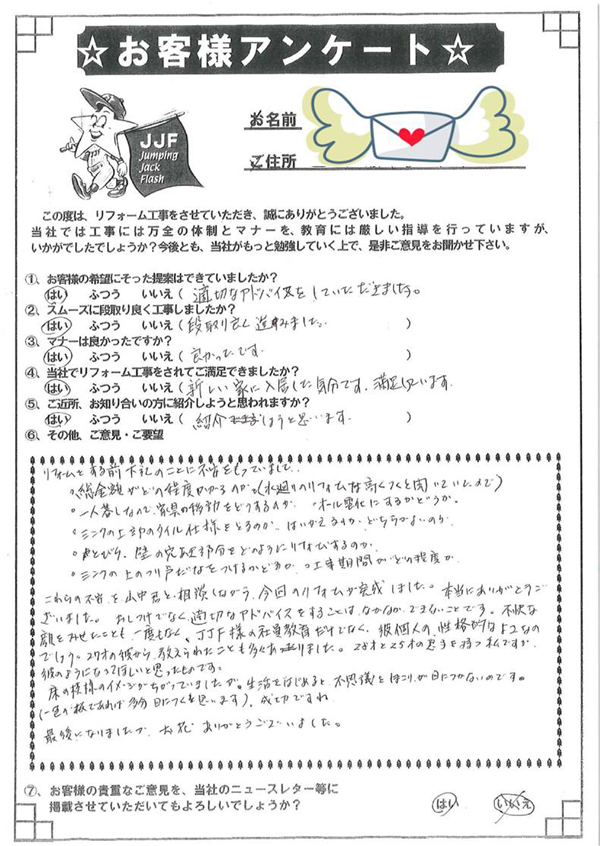 ☆お客様アンケート☆
JJF
Jumping
Jack
Flash
お名前
ご住所
この度は、リフォーム工事をさせていただき、誠にありがとうございました。
当社では工事には万全の体制とマナーを、教育には厳しい指導を行っていますが、
いかがでしたでしょうか?今後とも、当社がもっと勉強していく上で、是非ご意見をお聞かせ下さい。
①、お客様の希望にそった提案はできていましたか?
はい ふつう いいえ( 適切なアドバイスをしていただきました。
②、スムーズに段取り良く工事しましたか?
はい ふつう いいえ( 段取り良く進みました。 )
③、マナーは良かったですか?
はい ふつう いいえ( 良かったです。 )
④、当社でリフォーム工事をされてご満足できましたか?
はい ふつう いいえ( 新しい家に入居した気分です。満足しています。
⑤、ご近所、お知り合いの方に紹介しようと思われますか?
はい ふつう いいえ( 紹介しようと思います。 )
⑥、その他、ご意見・ご要望
リフォームをする前下記のことに不安をもっていました。
○総金額がどの程度かかるのか。(水廻りのリフォームは高くつくと聞いていたので)
○一人暮しなので、家具の移動をどうするのか。 ○オール電化にするかどうか。
○シンクの上部のタイル仕様をとるのか、はりかえるのか、どちらがよいのか
○シンクの上のつり戸だなをつけるかどうか ○工事期間がどの程度か
これらの不安を山中君と相談しながら、今回のリフォームが完成しました。本当にありがとうご
ざいました。おしつけでなく適切なアドバイスをすることは、なかなかできないことです。不快な
顔をみせたことも一度もなく、JJF様の社員教育だけでなく、彼個人の性格が
でしょう。27才の彼から、教えられたことも多くありました。28才と25才の息子を持つ私ですが
彼のようになってほしいと思ったものです。
床の模様のイメージがちがっていましたが、生活をはじめると不思議とほこりが目につかないのです。
(一色の板であれば多分目につくと思います)、成功ですね
最後になりましたが、お花ありがとうございました。
⑦、お客様の貴重なご意見を、当社のニュースレター等に
掲載させていただいてもよろしいでしょうか? はい いいえ